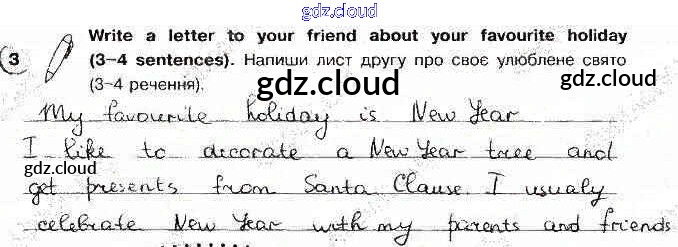 gdz.cloud
Write a letter to your friend about your favourite holiday
3 (3–4 sentences). Напиши лист другу про своє улюблене свято
(3–4 речення).
gdz.cloud
gdz.cloud
My favourite holiday is New Year
I like to decorate a New Year tree and
gdz.cloud
get presents from Santa Clause. I usualy
celebrate New Year with my parents and friends